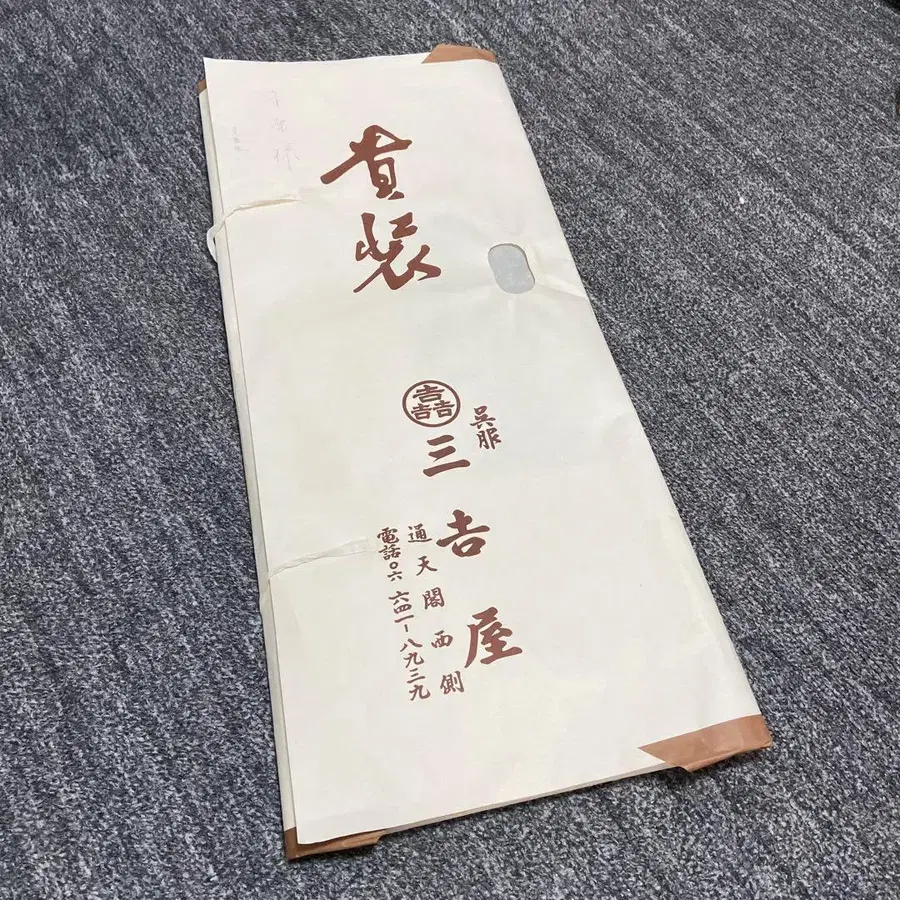 貴装
吉吉吉
呉服
三吉屋
通天閣西側
電話〇六 六四一-八九三九